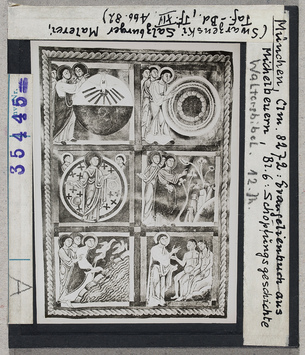 München Clm 8272. Evangelienbuch aus
Michelbeuern. Bl. 6: Schöpfungsgeschichte
Walterbibel. 12. Jh
(Swarzenski: Salzburger Malerei,
Taf. Bd., Tf. XIV Abb. 82)
35445
A